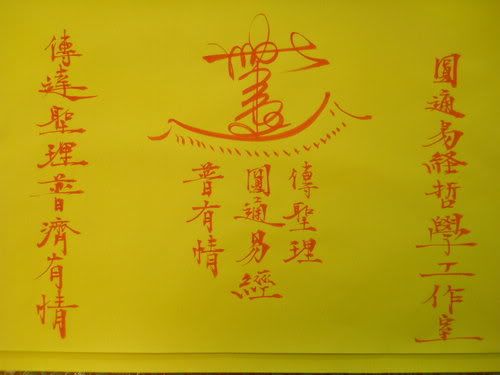 圓通易経哲學工作室
傳聖理
圓通易經
普有情
傳達聖理普濟有情